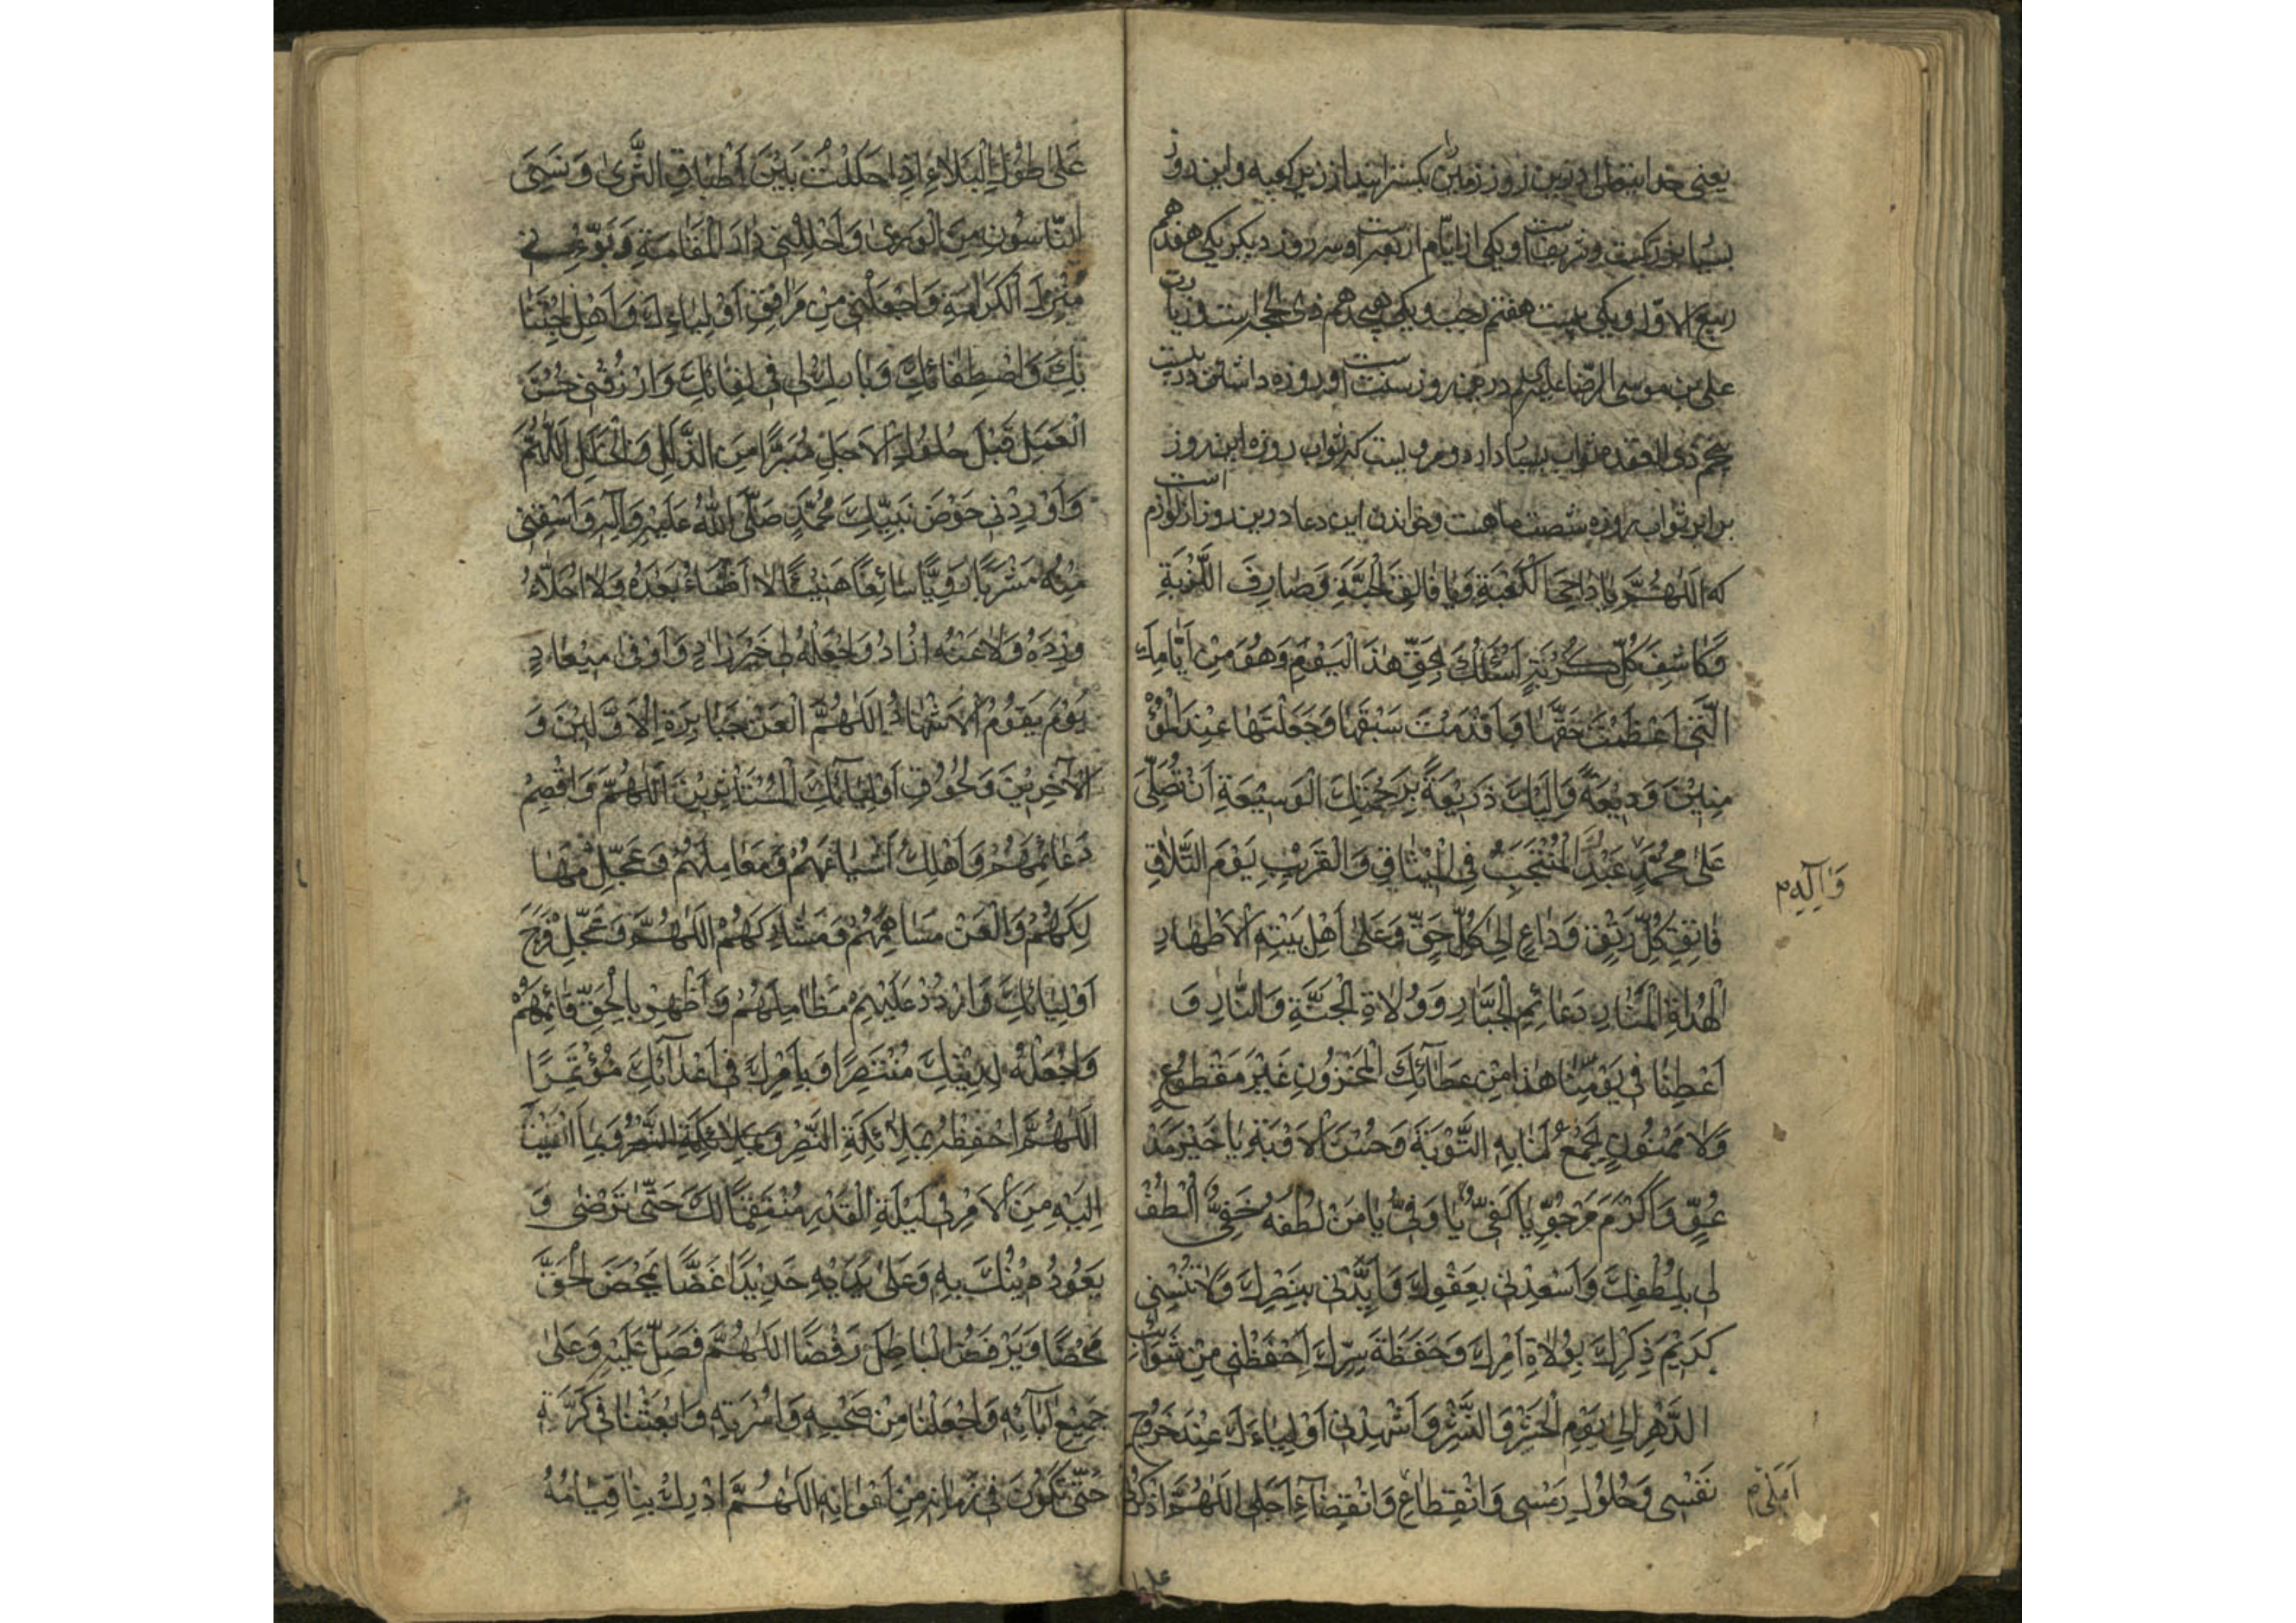 یعنی خدایتعالی درین روز زمین بگسترانید از زیر کعبه و این روز
بسیار بزرگست و شریفست و یکی از ایام اربعه است و سه روز دیگر یکی هفدهم
ربیع الاول و یکی بیست هفتم رجب و یکی هیجدهم ذی الحجه است و زیارت
علی بن موسی الرضا علیه السلم درین روز سنت است و روزه داشتن در بیست
پنجم ذی القعده ثواب بسیار دارد و مرویست که ثواب روزه این روز
برابر ثواب روزه شصت ماهست و خواندن این دعا درین روز از لوازم است
که اَللّٰهُمَّ یا دٰاحِیَ الْکَعْبَةِ وَ یٰا فٰالِقَ الْحَبَّةِ وَ صٰارِفَ اللَّزْبَةِ
وَ کٰاشِفَ کُلِّ کُرْبَةٍ اَسْئَلُکَ بِحَقِّ هٰذَا الْیَوْمِ وَ هُوَ مِنْ اَیّٰامِکَ
الَّتی اَعْظَمْتَ حَقَّهٰا وَ اَقْدَمْتَ سَبْقَهٰا وَ جَعَلْتَهٰا عِنْدَ الْمُؤْ
مِنینَ وَدیعَةً وَ اِلَیْکَ ذَریعَةً بِرَحْمَتِکَ الْوَسیعَةِ اَنْ تُصَلِّیَ
عَلیٰ مُحَمَّدٍ عَبْدِکَ الْمُنْتَجَبِ فِی الْمیثٰاقِ وَ الْقَریبِ یَوْمَ التَّلاٰقِ
فٰاتِقِ کُلِّ رَتْقٍ وَ دٰاعٍ اِلیٰ کُلِّ حَقٍّ وَ عَلیٰ اَهْلِ بَیْتِهِ الْاَطْهٰارِ
الْهُدٰاةِ الْمَنٰارِ دَعٰائِمِ الْجَبّٰارِ وَ وُلاٰةِ الْجَنَّةِ وَ النّٰارِ وَ
اَعْطِنٰا فی یَوْمِنٰا هٰذٰا مِنْ عَطٰائِکَ الْمَخْزُونِ غَیْرَ مَقْطُوعٍ
وَ لاٰ مَمْنُونٍ تَجْمَعُ لَنٰا بِهِ التَّوْبَةَ وَ حُسْنَ الْاَوْبَةِ یٰا خَیْرَ مَدْ
عُوٍّ وَ اَکْرَمَ مَرْجُوٍّ یٰا کَفِیُّ یٰا وَفِیُّ یٰا مَنْ لُطْفُهُ خَفِیٌّ اُلْطُفْ
لی بِلُطْفِکَ وَ اَسْعِدْنی بِعَفْوِکَ وَ اَیِّدْنی بِنَصْرِکَ وَ لاٰ تُنْسِنی
کَریمَ ذِکْرِکَ بِوُلاٰةِ اَمْرِکَ وَ حَفَظَةِ سِرِّکَ اِحْفَظْنی مِنْ شَوٰائِبِ
الدَّهْرِ اِلیٰ یَوْمِ الْحَشْرِ وَ النَّشْرِ وَ اَشْهِدْنی اَوْلِیٰاءَکَ عِنْدَ خُرُوجِ
نَفْسی وَ حُلُولِ رَمْسی وَ انْقِطٰاعِ وَ انْقِضٰاءِ اَجَلی اَللّٰهُمَّ وَ اذْکُرْنی
وَ آلِهِ م
عَمَلی م
عَلیٰ
عَلیٰ طُولِ الْبَلاٰءِ اِذٰا حَلَلْتُ بَیْنَ اَطْبٰاقِ الثَّریٰ وَ نَسِیَنِی
النّٰاسُونَ مِنَ الْوَریٰ وَ اَحْلِلْنی دٰارَ الْمُقٰامَةِ وَ بَوِّئْنی
مَنْزِلَ الْکَرٰامَةِ وَ اجْعَلْنی مِنْ مُرٰافِقی اَوْلِیٰاءِکَ وَ اَهْلِ اجْتِبٰا
ئِکَ وَ اصْطِفٰائِکَ وَ بٰارِکْ لی فی لِقٰائِکَ وَ ارْزُقْنی حُسْنَ
الْعَمَلِ قَبْلَ حُلُولِ الْاَجَلِ مُبَرَّءًا مِنَ الزَّلَلِ وَ الْخَطَلِ اَللّٰهُمَّ
وَ اَوْرِدْنی حَوْضَ نَبِیِّکَ مُحَمَّدٍ صَلَّی اللّٰهُ عَلَیْهِ وَ آلِهِ وَ اسْقِنی
مِنْهُ مَشْرَبًا رَوِیًّا سٰائِغًا هَنیئًا لاٰ اَظْمَاُ بَعْدَهُ وَ لاٰ اُحَلَّاُ
وِرْدَهُ وَ لاٰ عَنْهُ اُذٰادُ وَ اجْعَلْهُ لی خَیْرَ زٰادٍ وَ اَوْفیٰ میعٰادٍ
یَوْمَ یَقُومُ الْاَشْهٰادُ اَللّٰهُمَّ الْعَنْ جَبٰابِرَةَ الْاَوَّلینَ وَ
الْآخِرینَ وَ لِحُقُوقِ اَوْلِیٰائِکَ الْمُسْتَأْثِرینَ اَللّٰهُمَّ وَ اقْصِمْ
دَعٰائِمَهُمْ وَ اَهْلِکْ اَشْیٰاعَهُمْ وَ عٰامِلَهُمْ وَ عَجِّلْ مَهٰا
لِکَهُمْ وَ الْعَنْ مُسٰاهِمَهُمْ وَ مُشٰارِکَهُمْ اَللّٰهُمَّ وَ عَجِّلْ فَرَجَ
اَوْلِیٰائِکَ وَ ارْدُدْ عَلَیْهِمْ مَظٰالِمَهُمْ وَ اَظْهِرْ بِالْحَقِّ قٰائِمَهُمْ
وَ اجْعَلْهُ لِدینِکَ مُنْتَصِرًا وَ بِاَمْرِکَ فی اَعْدٰائِکَ مُؤْتَمِرًا
اَللّٰهُمَّ احْفِظْهُ بِمَلاٰئِکَةِ النَّصْرِ وَ بِمَلاٰئِکَةِ النَّصْرِ وَ بِمٰا اَلْقَیْتَ
اِلَیْهِ مِنَ الْاَمْرِ فی لَیْلَةِ الْقَدْرِ مُنْتَقِمًا لَکَ حَتّیٰ تَرْضیٰ وَ
یَعُودَ دینُکَ بِهِ وَ عَلیٰ یَدَیْهِ جَدیدًا غَضًّا یَمْحَضَ الْحَقَّ
مَحْضًا وَ یَرْفَضُ الْبٰاطِلَ رَفْضًا اَللّٰهُمَّ فَصَلِّ عَلَیْهِ وَ عَلیٰ
جَمیعِ آبٰائِهِ وَ اجْعَلْنٰا مِنْ صَحْبِهِ وَ اُسْرَتِهِ وَ ابْعَثْنٰا فی کَرَّتِهِ
حَتّیٰ نَکُونَ فی زَمٰانِهِ مِنْ اَعْوٰانِهِ اَللّٰهُمَّ اَدْرِکْ بِنٰا قِیٰامَهُ